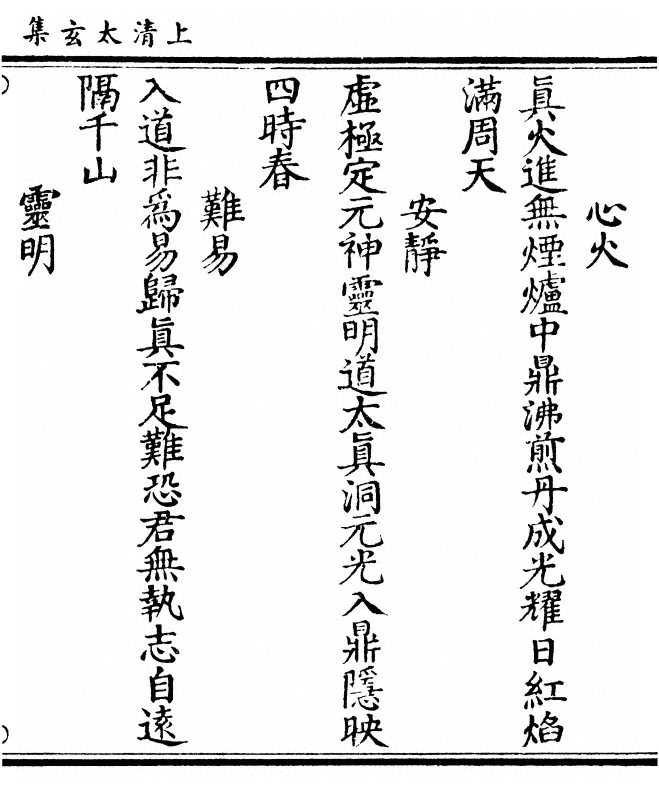 上清太玄集
心火
真火進無煙爐中鼎沸煎丹成光耀日紅焰
滿周天
安靜
虛極定元神靈明道太真洞元光入鼎隱映
四時春
難易
入道非為易歸真不足難恐君無執志自遠
隔千山
靈明